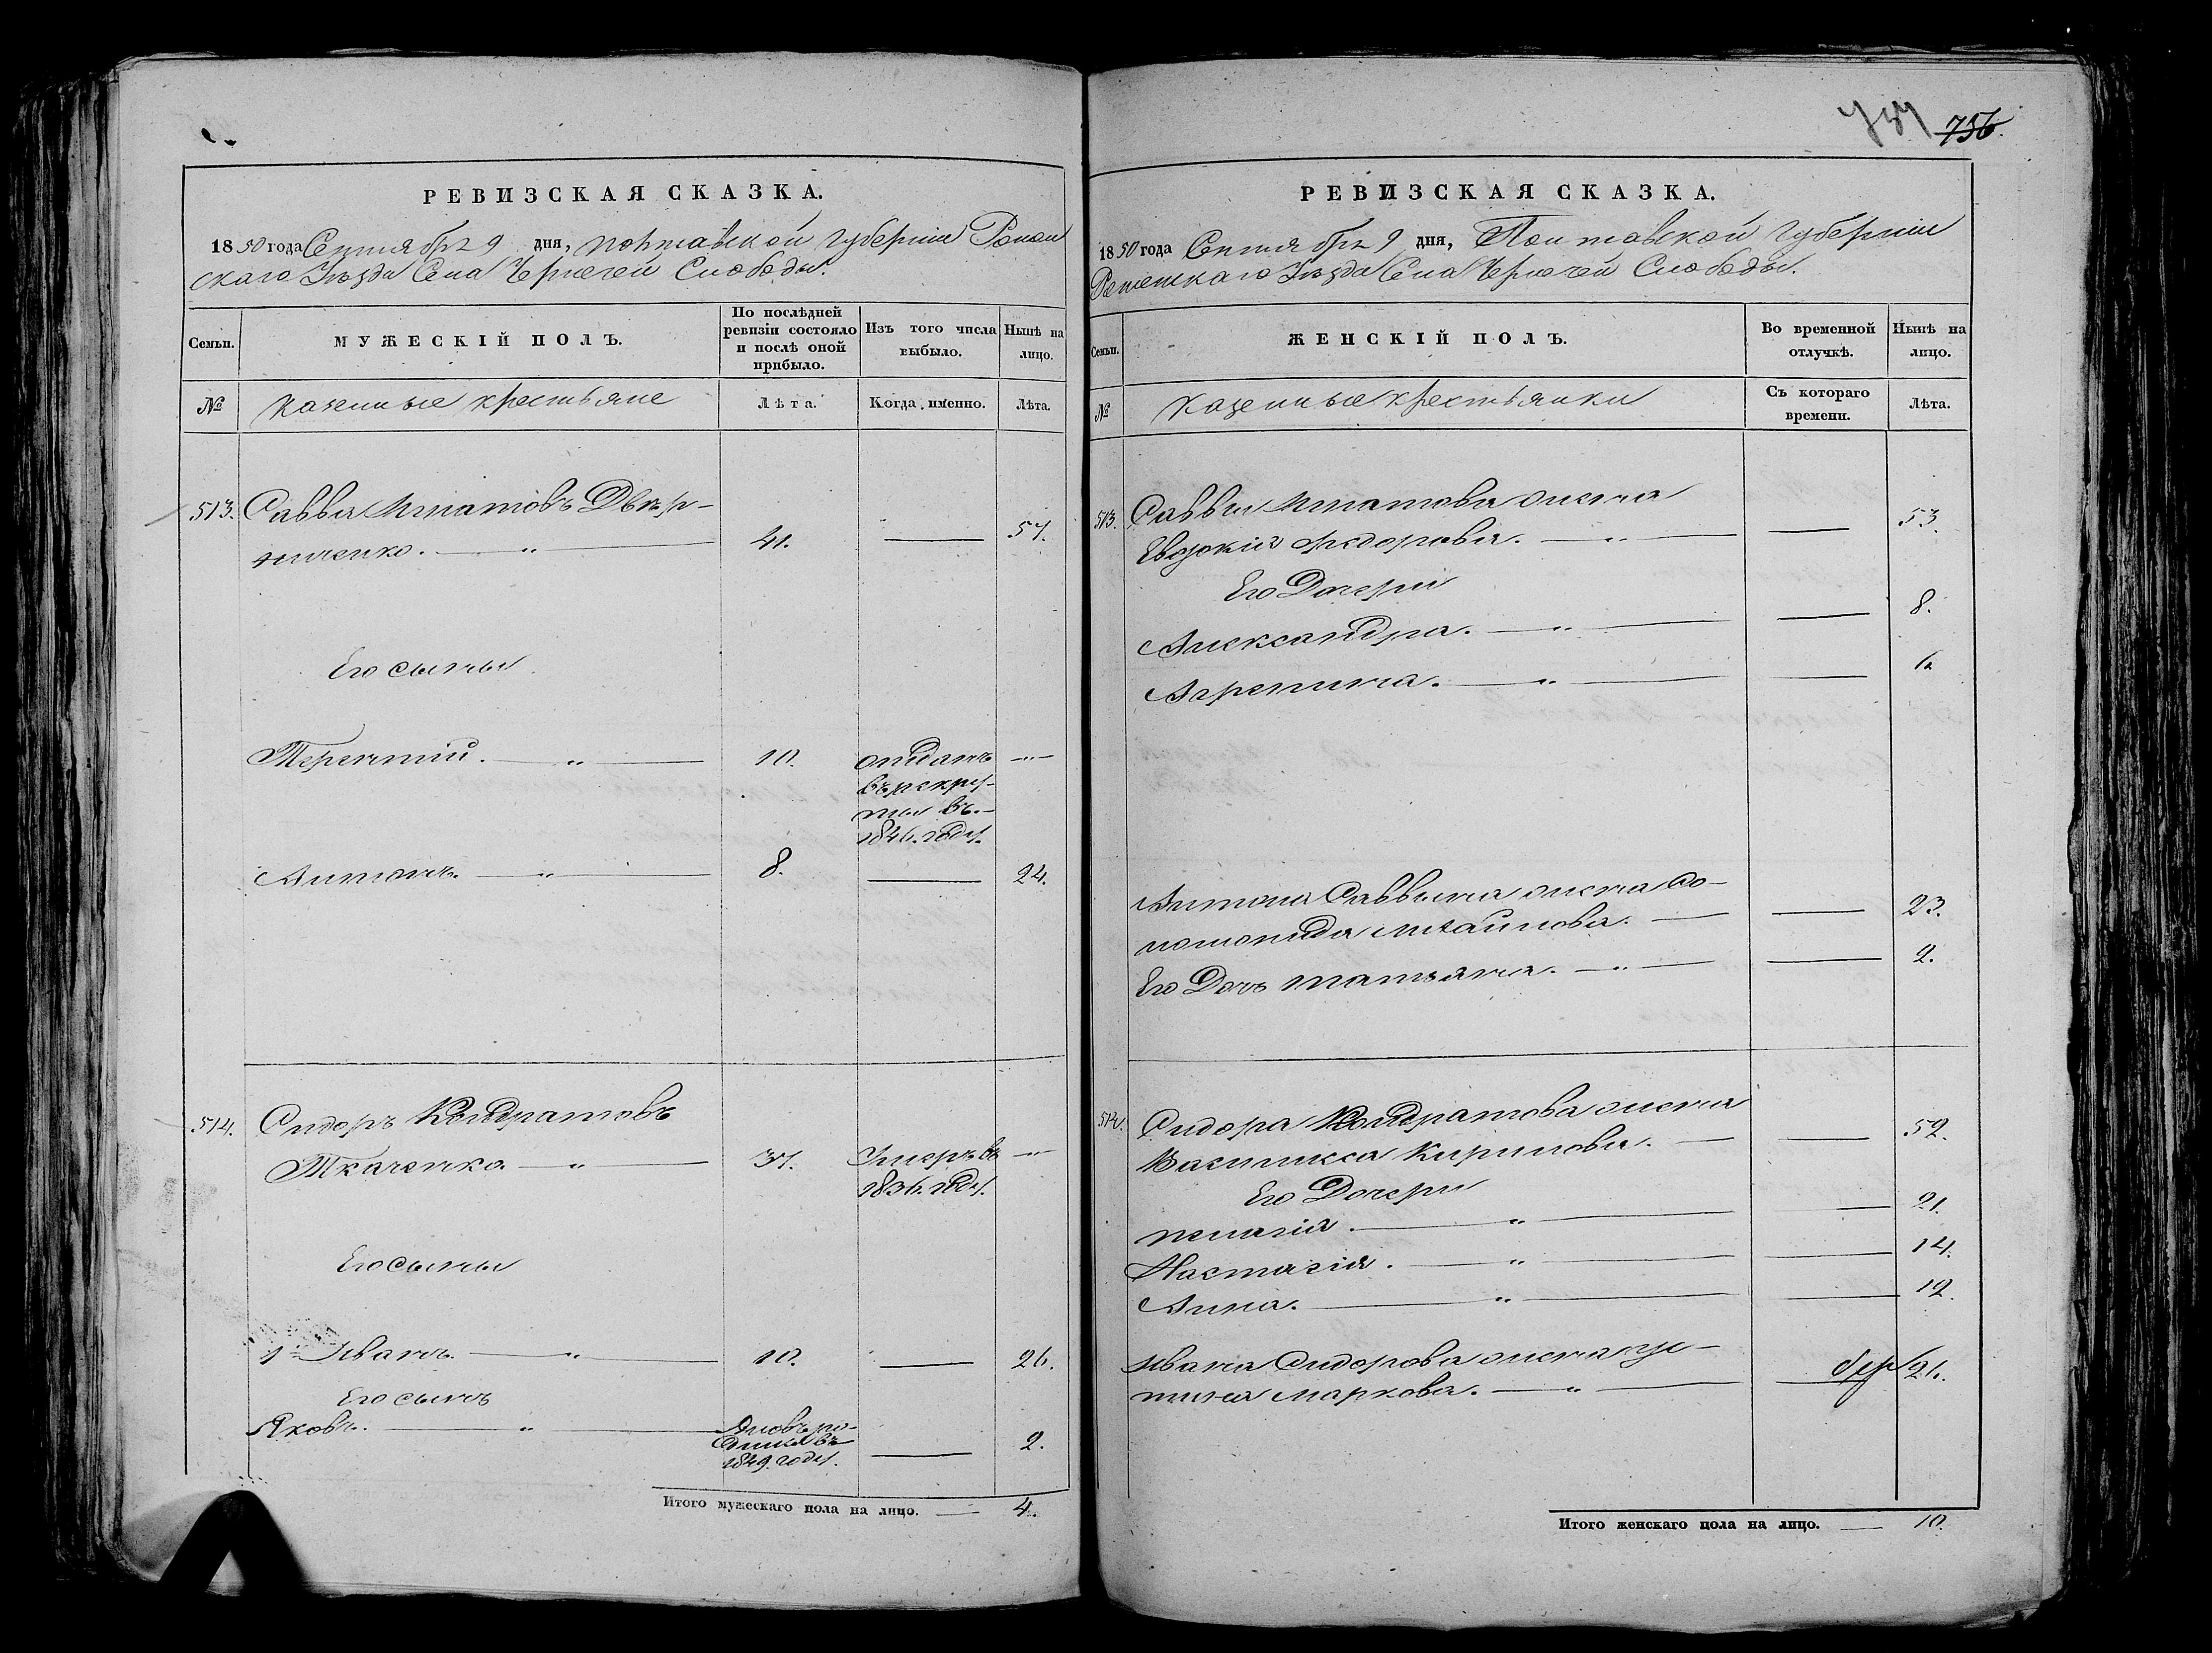 РЕВИЗСКАЯ СКАЗКА.
1850 года Сентября 9 дня, Полтавской Губернии Ромен
скаго Уѣзда Села Чернечей Слободы.
Семьи.
МУЖЕСКІЙ ПОЛЪ.
По послѣдней
ревизіи состояло
и послѣ оной
прибыло.
Изъ того числа
выбыло.
Нынѣ на
лицо.
№
Казенные крестьяне
Лѣта.
Когда именно.
Лѣта.
513. Савва Игнатовъ
ниченко. 41. 57.
Его сыны
Терентій. 10. отданъ
въ рекру-
ты въ
1846. году.
Антонъ. 8. 24.
514. Сидоръ Кондратовъ
Ткаченко 37. Умеръ въ
1836. году.
Его сыны
1 Иванъ. 10. 26.
Его сынъ
Яковъ. Вновь ро-
дился въ
1849. году. 2.
Итого мужескаго пола на лицо. 4.
756.
РЕВИЗСКАЯ СКАЗКА.
1850 года Сентября 9 дня, Полтавской Губернии
Роменскаго Уѣзда Села Чернечей Слободы.
Семьи.
ЖЕНСКІЙ ПОЛЪ.
Во временной
отлучкѣ.
Нынѣ на
лицо.
№
Казенные крестьянки
Съ котораго
времени.
Лѣта.
513. Саввы Игнатова жена
Евдокія Федорова. 53.
Его Дочери
Александра. 8.
Агрепина. 6
Антона Саввина жена Со-
ломонида Михайлова. 23.
Его Дочь Татьяна. 2.
514. Сидора Кондратова жена
Василиса Кирилова. 52.
Его Дочери
Пелагія. 21.
Настасія. 14.
Анна. 12.
Ивана Сидорова жена Ус-
тина Маркова. 26.
Итого женскаго пола на лицо. 10.